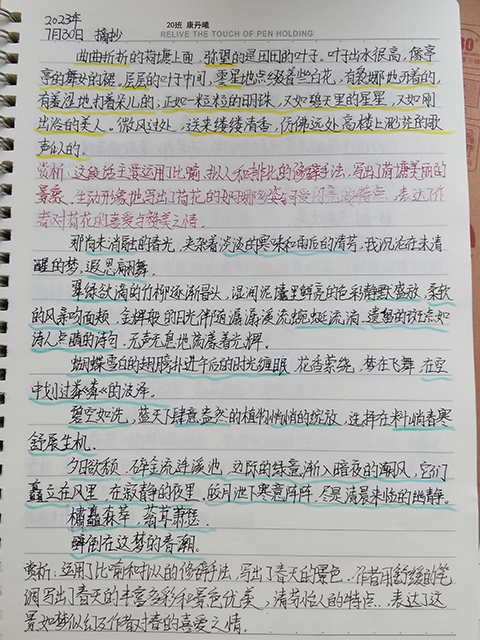 2023年
7月30日 摘抄
20班 康丹曦
RELIVE THE TOUCH OF PEN HOLDING
曲曲折折的荷塘上面，弥望的是田田的叶子。叶子出水很高，像亭
亭的舞女的裙。层层的叶子中间，零星地点缀着些白花，有袅娜地开着的，
有羞涩地打着朵儿的；正如一粒粒的明珠，又如碧天里的星星，又如刚
出浴的美人。微风过处，送来缕缕清香，仿佛远处高楼上渺茫的歌
声似的。
赏析：这段话主要运用了比喻、拟人和排比的修辞手法，写出了荷塘美丽的
景象，生动形象地写出了荷花的婀娜多姿与可爱闪亮的特点，表达了作
者对荷花的喜爱与赞美之情。
那尚未消融的春光，夹杂着淡淡的寒味和雨后的清芳，我沉浴在未清
醒的梦，遐思翩舞。
翠绿欲滴的竹柳逐渐冒头，湿润泥壤里鲜亮的色彩静默盛放，柔软
的风亲吻面颊，金辉般的日光伴随潺潺溪流蜿蜒流淌，遗落的斑点如
诗人点睛的诗句，无声无息地荡着着光辉。
蝴蝶雪白的翅膀扑进午后的时光缠眠，花香萦绕，梦在飞舞，在空
中划过粼粼的波泽。
碧空如洗，蓝天下肆意盎然的植物悄悄的绽放，选择在料峭春寒
舒展生机。
夕日欲颓，碎金流连溪池，边际的绿意渐入暗夜的潮风，它们
矗立在风里，在寂静的夜里，皎月池下寒意阵阵，尽是清景未临的幽静。
橚矗森萃，蓊茸萧瑟。
醉倒在这梦的春潮。
赏析：运用了比喻和拟人的修辞手法，写出了春天的景色，作者用舒缓的笔
调写出了春天的丰富多彩和景色优美，清芳怡人的特点，表达了这
景如梦似幻及作者对春的喜爱之情.